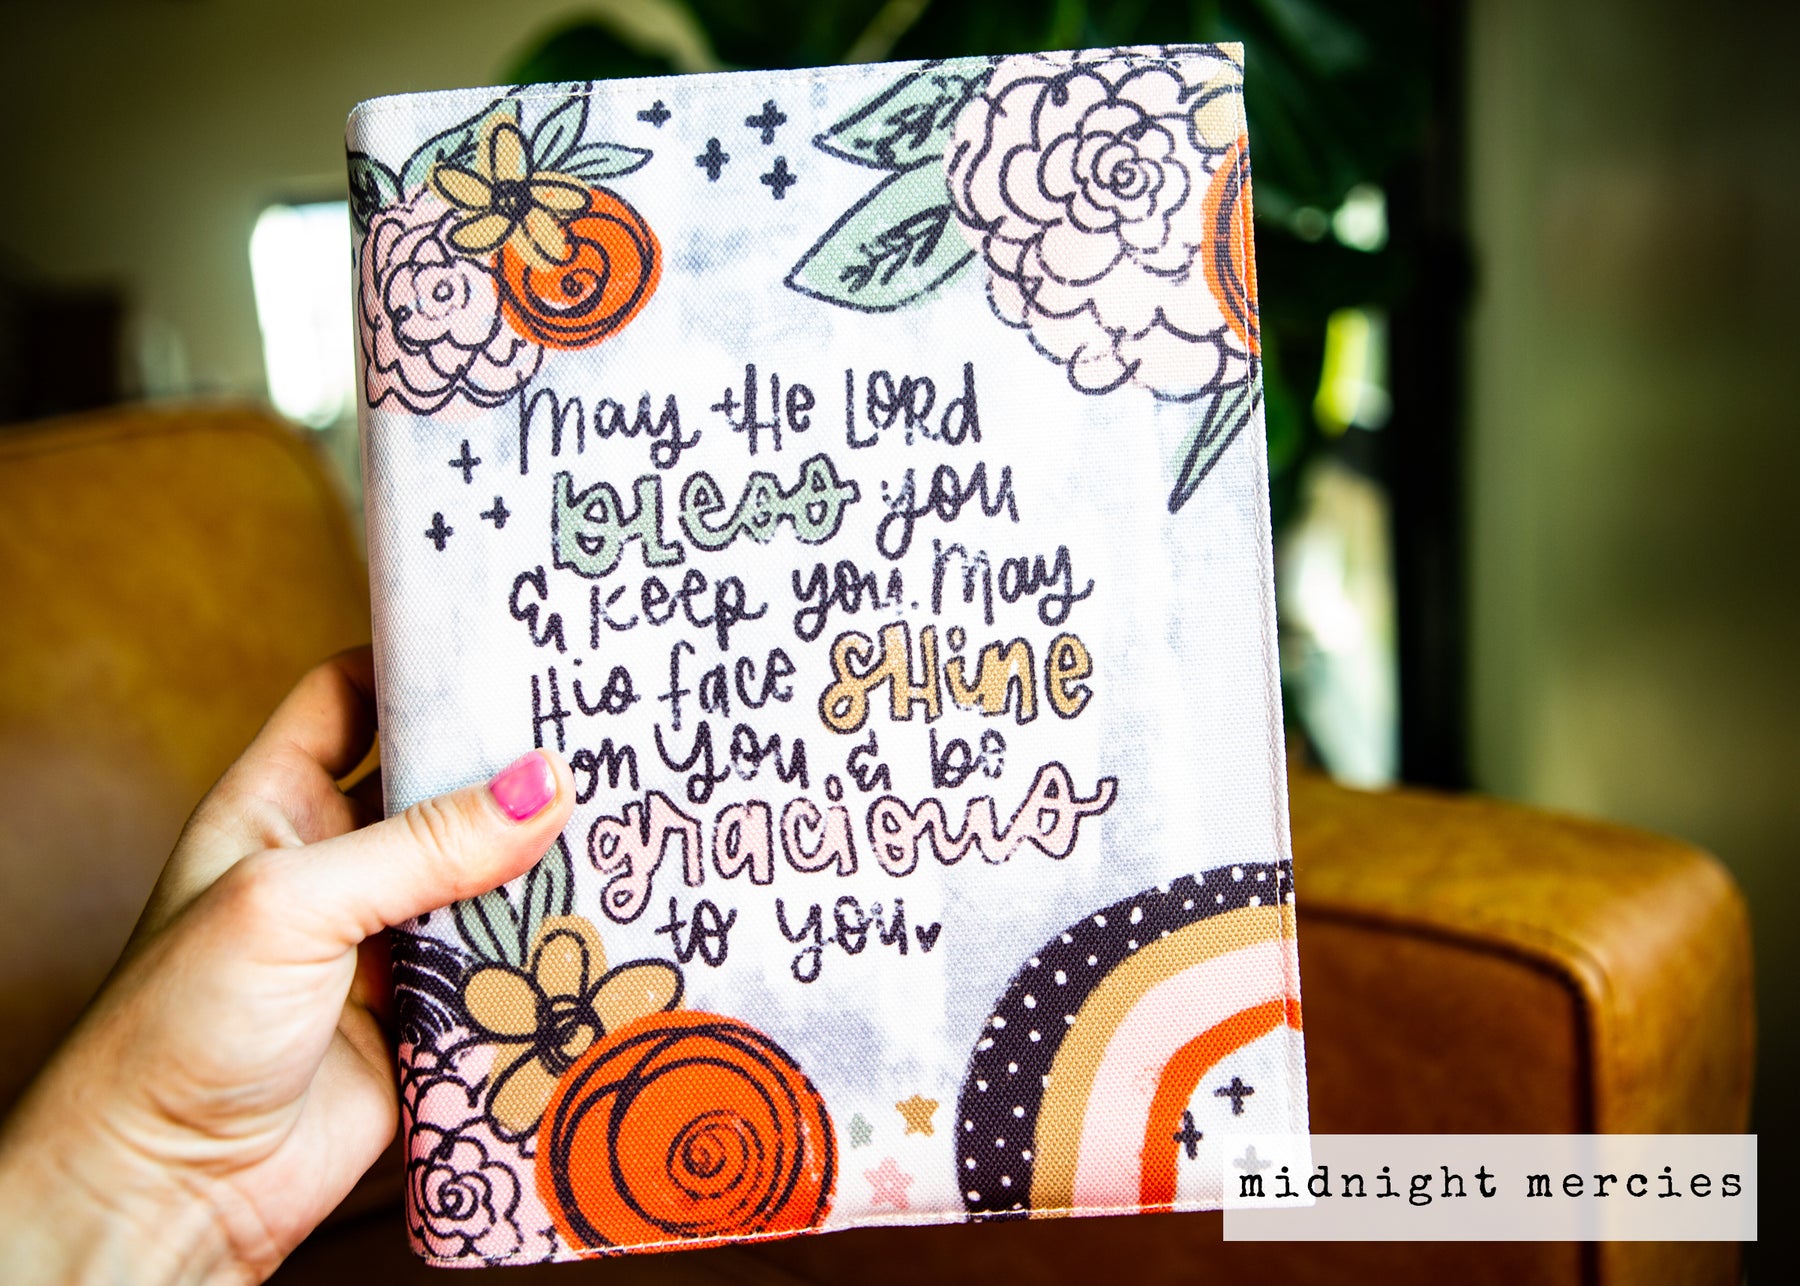 May the Lord
bless you
& keep you. May
His face shine
on you & be
gracious
to you
midnight mercies